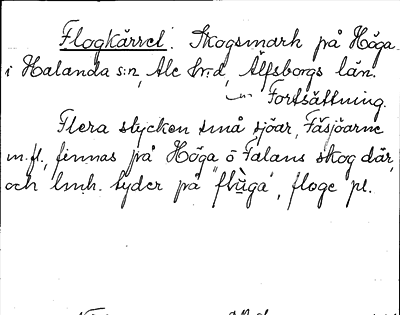 Flogkärret. Skogsmark på Höga
i Halanda s:n, Ale h:d, Älfsborgs län.
Fortsättning.
Flera stycken små sjöar, Fåsjöarne
m.fl., finnas på Höga o Falans skog där,
och lmh. tyder på "flùga", floge pl.